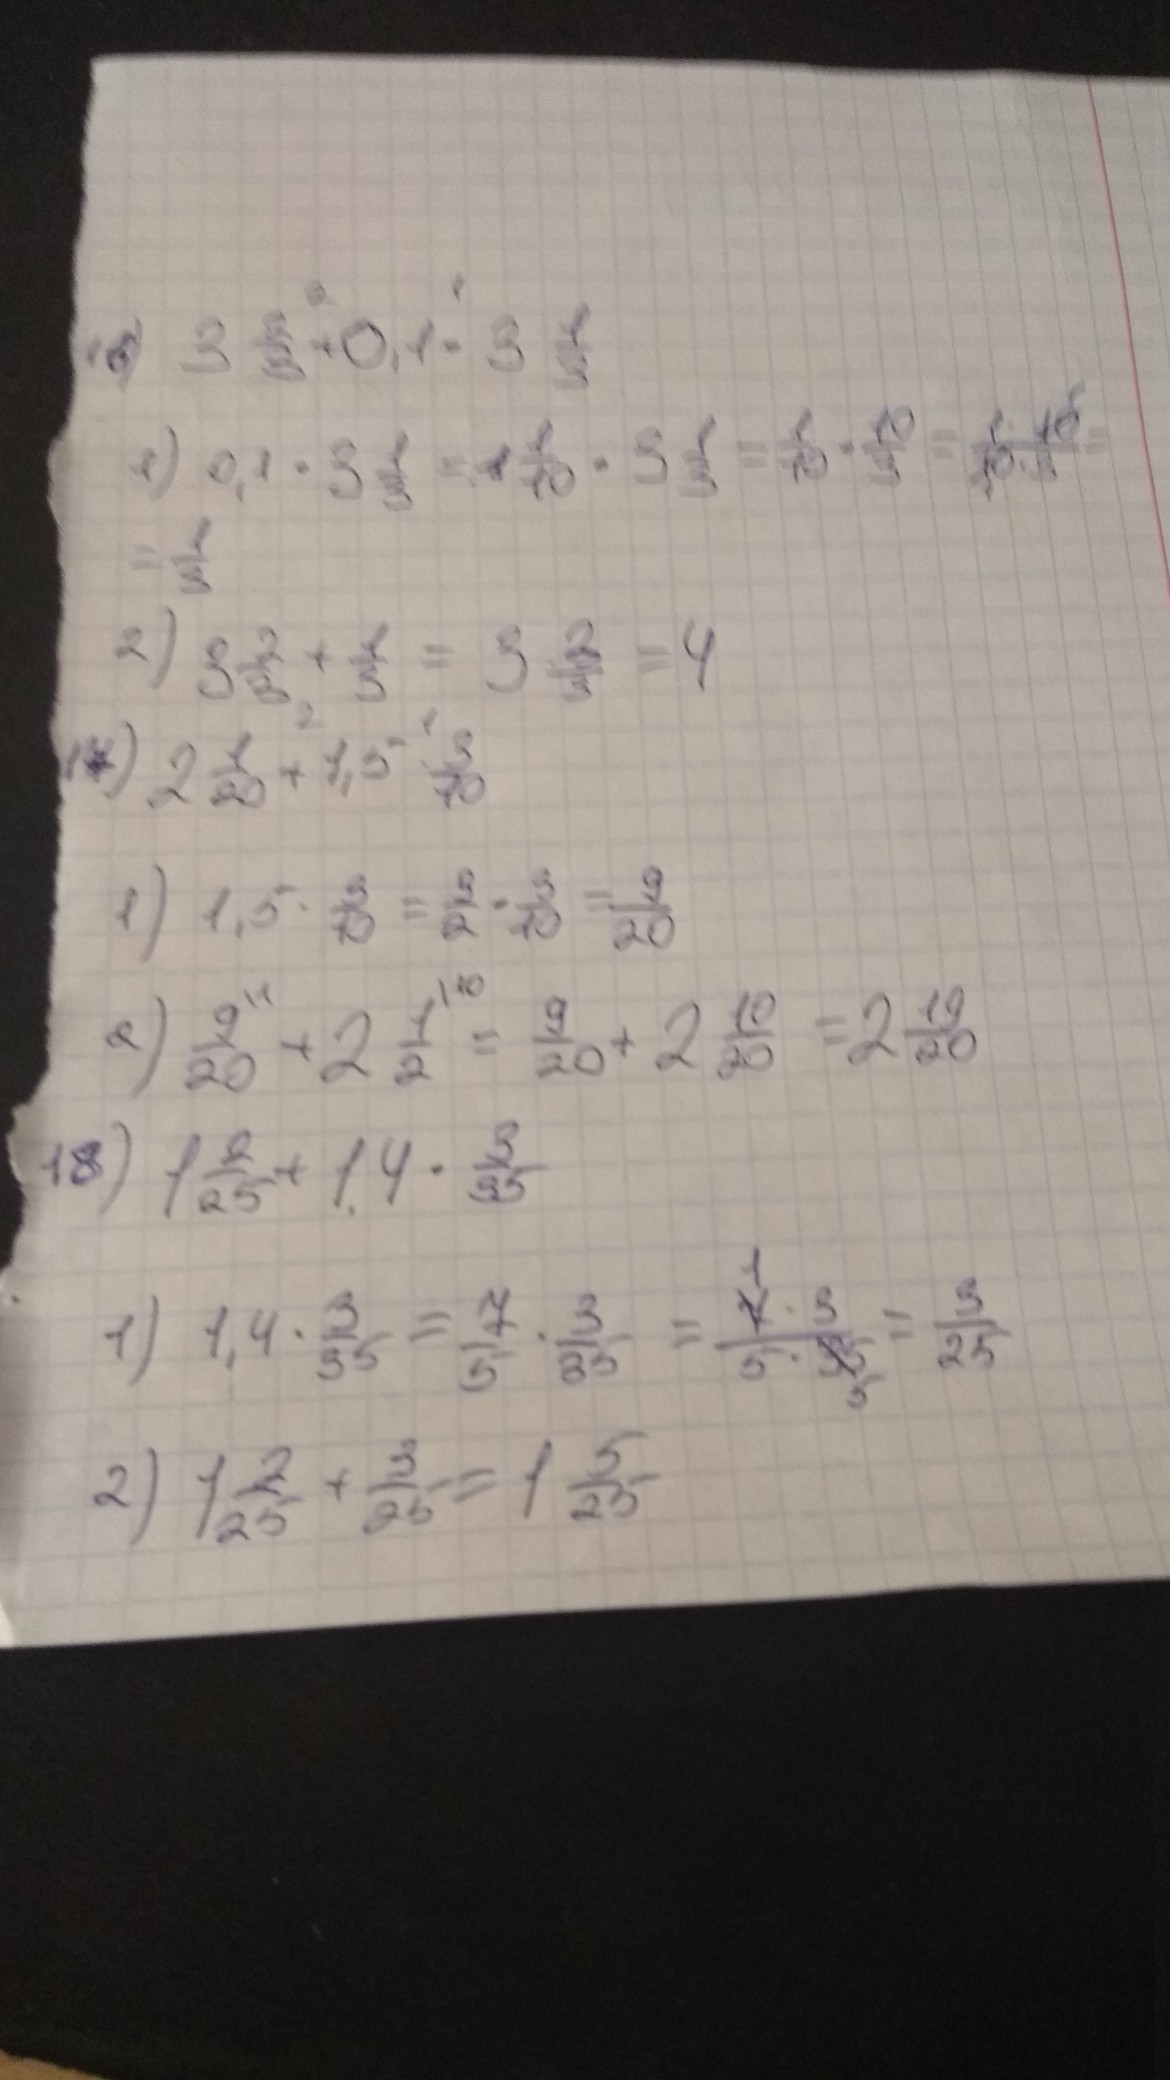 16) 3 2/3 + 0,1 · 3 1/3
1) 0,1 · 3 1/3 = 1 1/10 · 3 1/3 = 1/10 · 10/3 = 1·10/10·3 =
= 1/3
2) 3 2/3 + 1/3 = 3 2/3 = 4
17) 2 1/20 + 1,5 · 3/10
1) 1,5 · 3/10 = 3/2 · 3/10 = 9/20
2) 9/20 + 2 1/2 = 9/20 + 2 10/20 = 2 19/20
18) 1 2/25 + 1,4 · 3/35
1) 1,4 · 3/35 = 7/5 · 3/35 = 7·3/5·35 = 3/25
2) 1 2/25 + 3/25 = 1 5/25